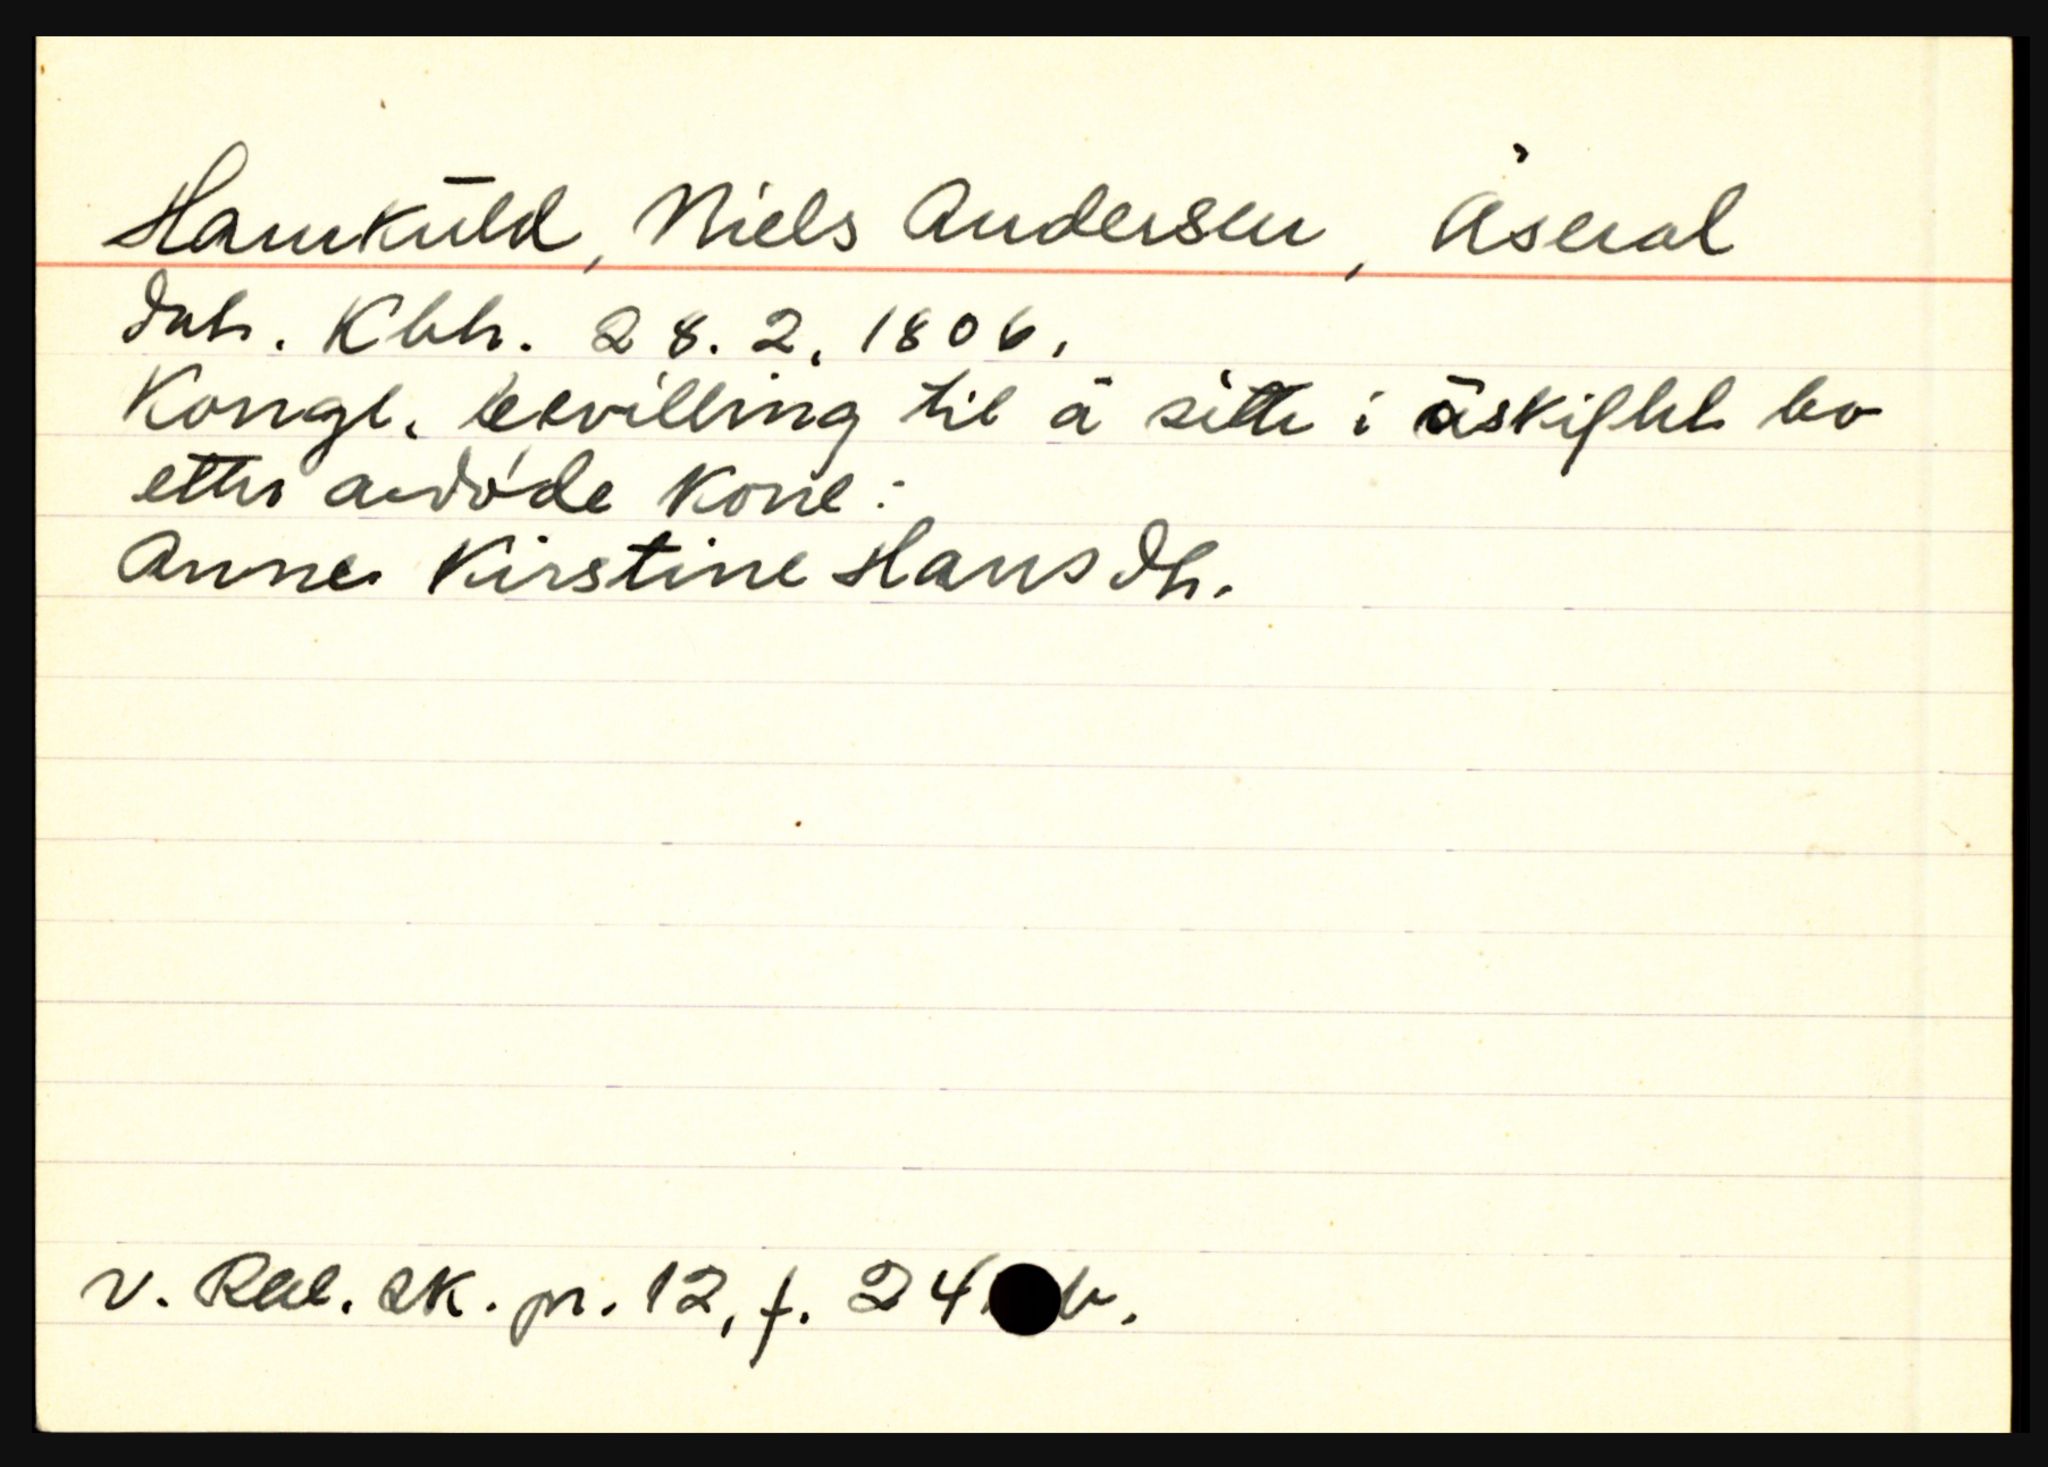 Hamkuld, Niels Andersen, Åseral
dat. Kbh. 28. 2. 1806.
Kongl. bevilling til å sitte i uskiftet bo
etter avdøde kone:
Anne Kirstine Hansdtr.
v. Rab. sk. pr. 12, f. 24 b.